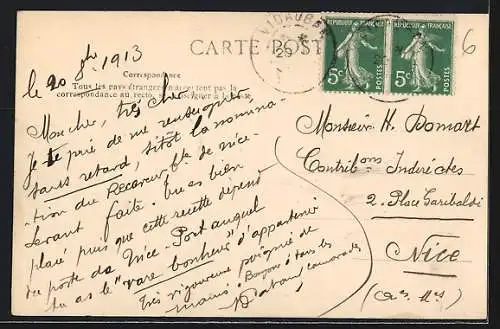 le 20 9bre 1913
CARTE POSTALE
Correspondance
Tous les pays étrangers n'acceptent pas la
correspondance au recto, se renseigner à la Poste.
VIDAUBAN
RÉPUBLIQUE FRANÇAISE
5c
RÉPUBLIQUE FRANÇAISE
5c
6
Mon cher, très cher
Je te prie de me renseigner
sans retard, sitôt la nomina-
tion du Receveur de Nice-
Levant faite. Tu es bien
placé puis que cette recette dépend
du poste de Nice-Port auquel
tu as le "rare bonheur" d'appartenir
Très vigoureuse poignée de
mains à tous les
camarades
Monsieur H. Domart
Contrib ons Indirectes
2. Place Garibaldi
Nice
(Aes Mes)